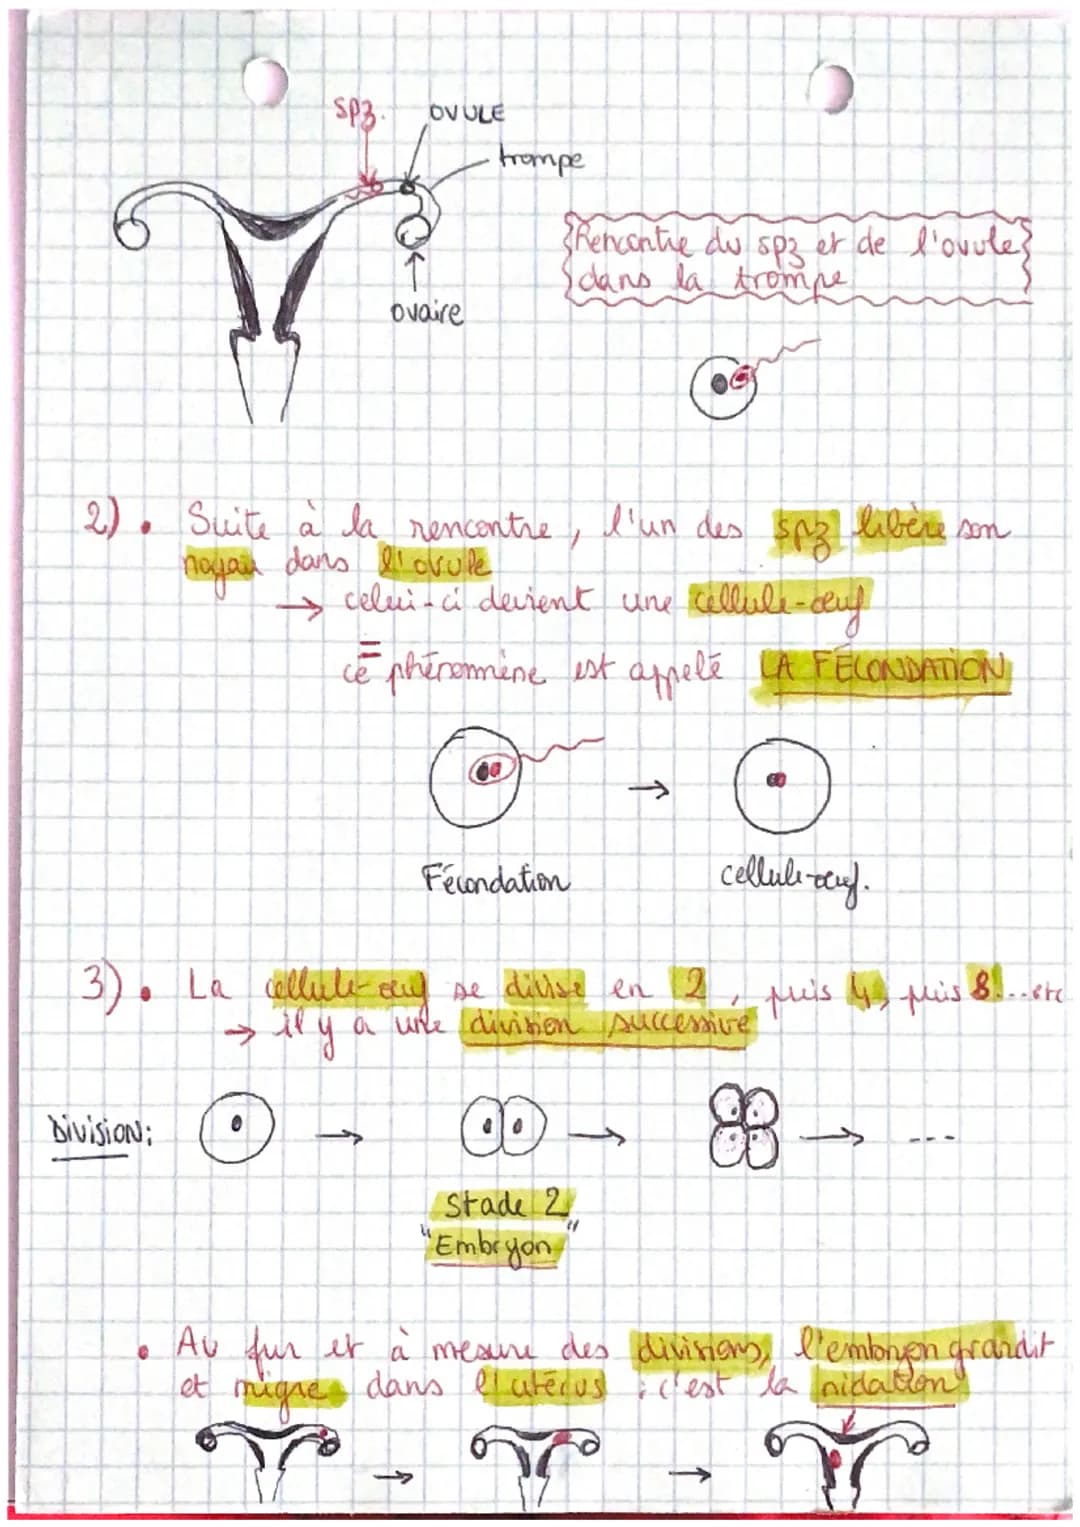 spz.
OVULE
trompe
Rencontre du spz et de l'ovule
dans la trompe
ovaire
2). Suite à la rencontre, l'un des spz libère son
noyau dans l'ovule
→ celui-ci devient une cellule-œuf
= ce phéromène est appelé LA FÉCONDATION
→
Fécondation
cellule-œuf.
3). La cellule-œuf se divise en 2, puis 4, puis 8...etc
→ il y a une division successive
Division: → → → ---
Stade 2
"Embryon"
• Au fur et à mesure des divisions, l'embryon grandit
et migre dans l'utérus : c'est la nidation
→ →